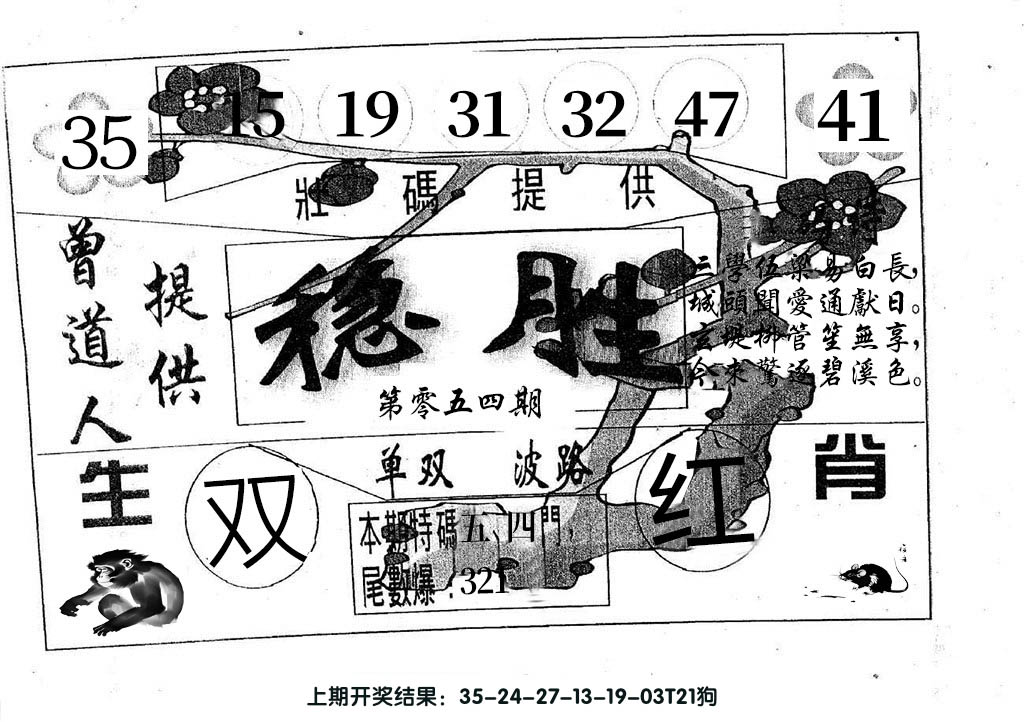 35 15 19 31 32 47 41
壯碼提供
曾道人
提供
稳胜
第零五四期
三學伍梁易白長，
城頭聞愛通獻日。
玄堤柳管笙無享，
今來驚逐碧溪色。
单双 波路
生 肖
双 红
本期特碼五、四門，
尾數爆：321
上期开奖结果：35-24-27-13-19-03T21狗